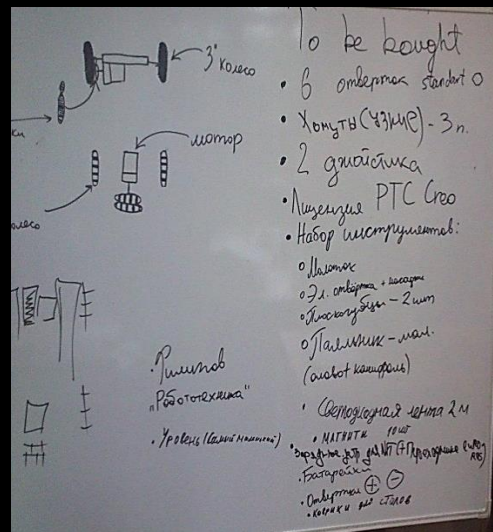 3" колесо
мотор
To be bought
• 6 отверток standart 0
• Хомуты (узкие) - 3 п.
• 2 джойстика
• Лицензия PTC Creo
• Набор инструментов:
Молоток
Эл. отвёртка + насадки
Плоскогубцы - 2 шт
Паяльник - мал.
(олово + канифоль)
• Светодиодная лента 2 м
• МАГНИТИ 10 шт
• Батарейки
• Отвертки + -
• коврики для столов
• Филипов
"Робототехника"
• Уровень (самый маленький)